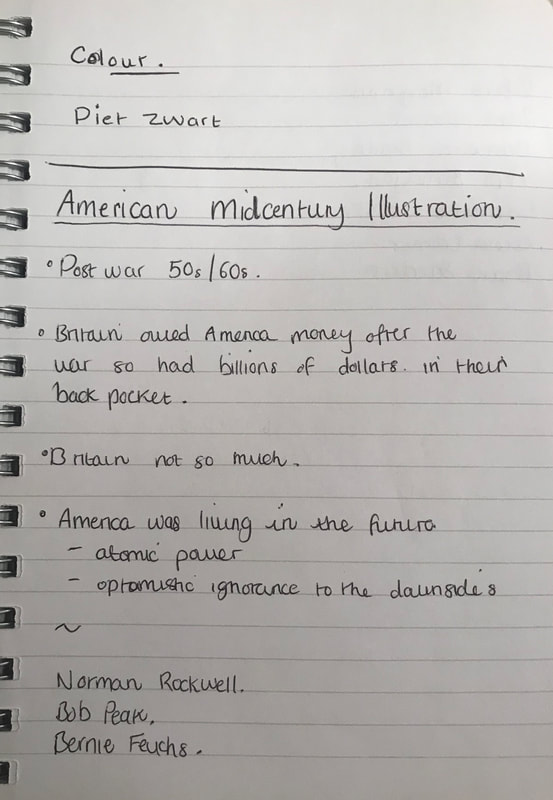 Colour.
Piet Zwart
American Midcentury Illustration.
° Post war 50s/60s.
° Britain owed America money after the
war so had billions of dollars. in their
back pocket.
° Britain not so much.
° America was living in the future
- atomic power
- optomistic ignorance to the downside's
~
Norman Rockwell.
Bob Peak.
Bernie Feuchs.